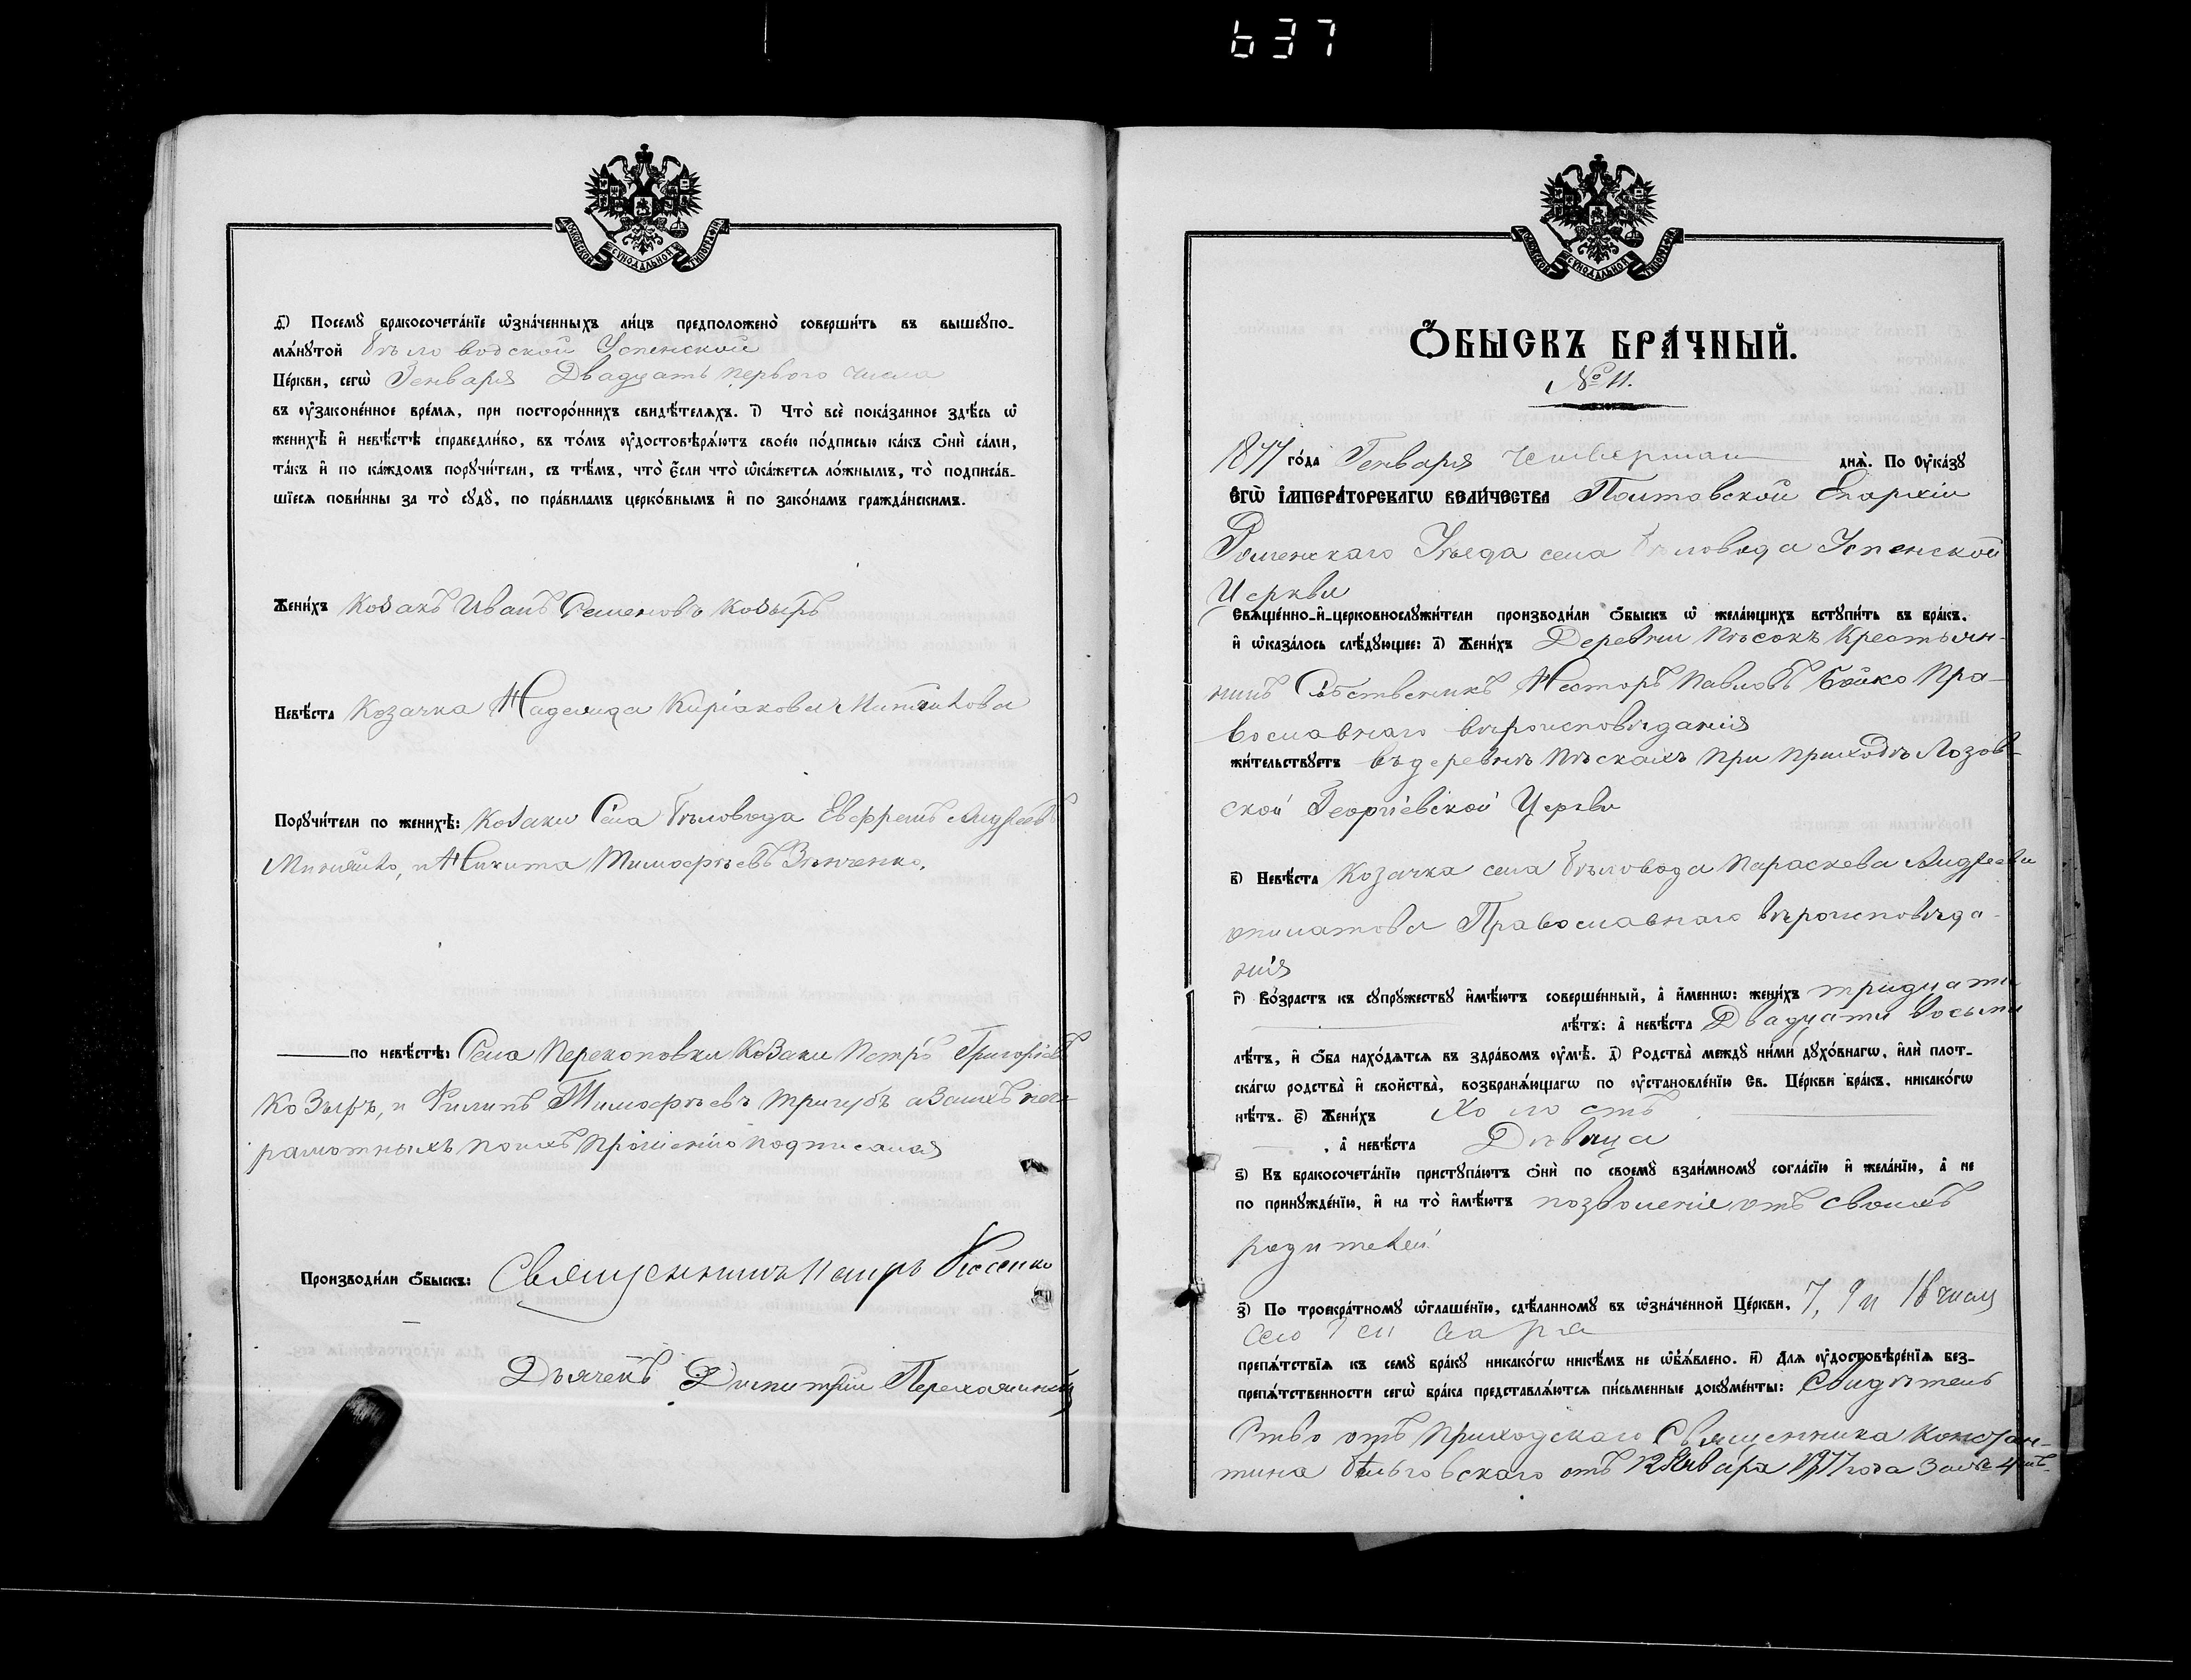 637
МОСКОВСКОЙ СѴНОДАЛЬНОЙ ТИПОГРАФІИ
ѳ҃) Посемꙋ бракосочета́нїе ѡ҆зна́ченныхъ ли́цъ предположено̀ соверши́ть въ вышеꙋпо-
мѧ́нꙋтой Бѣловодской Успенской
Це́ркви, сегѡ̀ Генваря Двадцать первого числа
въ ᲂу҆зако́ненное вре́мѧ, при посторо́ннихъ свидѣ́телѧхъ. і҃) Что̀ всѐ пока́занное здѣ́сь ѡ҆
женихѣ̀ и҆ невѣ́стѣ справедли́во, въ то́мъ ᲂу҆достовѣрѧ́ютъ свое́ю по́дписью ка́къ ѻ҆нѝ са́ми,
та́къ и҆ по ка́ждомъ порꙋчи́тели, съ тѣ́мъ, что̀ є҆́сли что̀ ѡ҆ка́жетсѧ ло́жнымъ, то̀ подписа́в-
шїесѧ пови́нны за то̀ сꙋдꙋ̀, по пра́виламъ церко́внымъ и҆ по зако́намъ гражда́нскимъ.
Жени́хъ Козакъ Иванъ Семеновъ Козыръ
Невѣ́ста Козачка Надежда Киріакова
Порꙋчи́тели по женихѣ̀: Козаки Села Бѣловода Евфремъ Андреевъ
и Никита Тимофѣевъ Зѣнченко.
по невѣ́стѣ: Села Перекоповки Козаки Петръ Григоріевъ
Козырь, и Филипъ Тимофѣевъ Тригубъ а За ихъ негра-
рамотныхъ по ихъ прошенію подписался
Производи́ли ѻ҆́быскъ: Священникъ Петръ
Дьячекъ Димитрій
МОСКОВСКОЙ СѴНОДАЛЬНОЙ ТИПОГРАФІИ
Ѻ҆́БЫСКЪ БРА́ЧНЫЙ.
№ 11.
1877 го́да Генваря Четвертаго днѧ̀. По ᲂу҆ка́зꙋ
Є҆гѡ̀ І҆мпера́торскагѡ Вели́чества Полтавской Епархіи
Роменскаго Уѣзда села Бѣловода Успенской
Церкви
Свѧще́нно-и҆-церковнослꙋжи́тели производи́ли ѻ҆́быскъ ѡ҆ жела́ющихъ встꙋпи́ть въ бра́къ.
и҆ ѡ҆каза́лось слѣ́дꙋющее: а҃) Жени́хъ Деревни Пѣсокъ Крестьян-
нинъ Собственникъ Несторъ Павловъ Бойко Пра-
вославнаго вѣроисповѣданія
жи́тельствꙋетъ въ деревнѣ Пѣскахъ при приходѣ Лозов-
ской Георгіевской Церкви
в҃) Невѣ́ста Козачка села Бѣловода Параскева Андреева
Православнаго вѣроисповѣда-
нія
г҃) Во́зрастъ къ сꙋпрꙋ́жествꙋ и҆мѣ́ютъ соверше́нный, а҆ и҆́меннѡ: жени́хъ тридцати
лѣ́тъ: а҆ невѣ́ста Двадцати восьми
лѣ́тъ, и҆ ѻ҆́ба нахо́дѧтсѧ въ здра́вомъ ᲂу҆мѣ̀. д҃) Родства̀ междꙋ̀ ни́ми дꙋхо́внагѡ, и҆лѝ плот-
ска́гѡ родства̀ и҆ сво́йства, возбранѧ́ющагѡ по ᲂу҆становле́нїю Св. Це́ркви бра́къ, никако́гѡ
нѣ́тъ. є҃) Жени́хъ Холостъ
, а҆ невѣ́ста Дѣвица
ѕ҃) Къ бракосочета́нїю пристꙋпа́ютъ ѻ҆нѝ по своемꙋ̀ взаи́мномꙋ согла́сїю и҆ жела́нїю, а҆ не
по принꙋжде́нїю, и҆ на то̀ и҆мѣ́ютъ позволеніе отъ своихъ
родителей
з҃) По троекра́тномꙋ ѡ҆глаше́нїю, сдѣ́ланномꙋ въ ѡ҆зна́ченной Це́ркви, 7, 9 и 16 числ
сего Генваря
препѧ́тствїѧ къ семꙋ̀ бра́кꙋ никако́гѡ никѣ́мъ не ѡ҆б̾ѧ́влено. и҃) Длѧ ᲂу҆достовѣре́нїѧ без-
препѧ́тственности сегѡ̀ бра́ка представлѧ́ютсѧ пи́сьменные докꙋме́нты: Свидѣтель
ство отъ Приходскаго Священника Констан-
тина отъ 12 Января 1877 года За № 4мъ